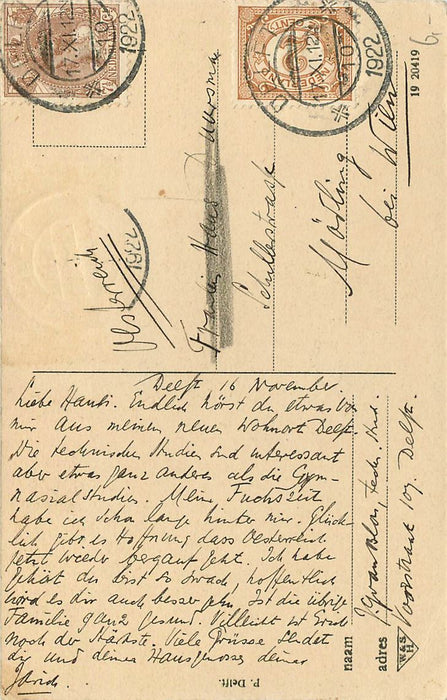 DELFT
17.XI.12
10
1922
DELFT
17.XI.12
10
1922
NEDERLAND
6-
19 20419
Hans
Schillerstrasse
Mödling
bei Wien
Oesterreich
1922
Delft, 16 November.
Liebe Hansi. Endlich hörst du etwas von
mir aus meinem neuen Wohnort Delft.
Die technischen Studien sind interessant
aber etwas ganz anderes als die Gym-
nasialstudien. Meine Fuchszeit
habe ich schon lange hinter mir. Glück-
lich gibt es Hoffnung dass Oesterreich
jetzt wieder bergauf geht. Ich habe
gehört du bist so swach, hoffentlich
wird es dir auch besser gehn. Ist die übrige
Familie ganz gesund. Villeicht ist Erich
noch der Stärkste. Viele Grüsse sendet
dir und deinen Hausgenossen deiner
naam
adres
Voorstraat 107, Delft.
W&S
H
P. Delft.